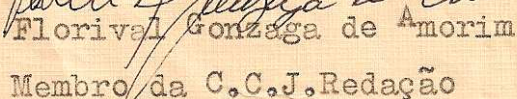 Florival Gonzaga de Amorim
Membro da C.C.J.Redação